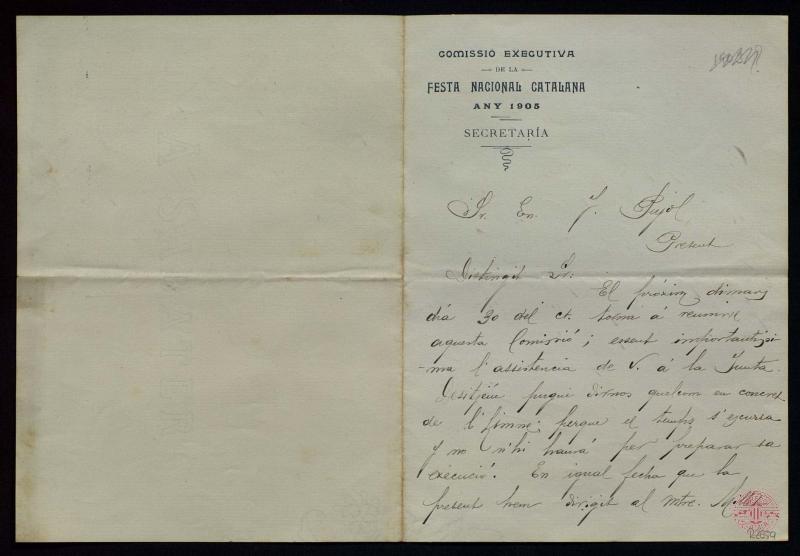 COMISSIÓ EXECUTIVA
DE LA
FESTA NACIONAL CATALANA
ANY 1905
SECRETARÍA
Sr. En. J. Pujol
Present
Distingit Sr:
El próxim dimars
día 30 del ct. torna á reunirse
aquesta Comissió; essent importantissi-
-ma l'assistencia de V. á la Junta.
Desitjém pugui dirnos quelcom en concret
de l'Himne; perque el temps s'escursa
y no n'hi haurá per preparar sa
execució. En igual fecha que la
present hem dirigit al mtre. Millet